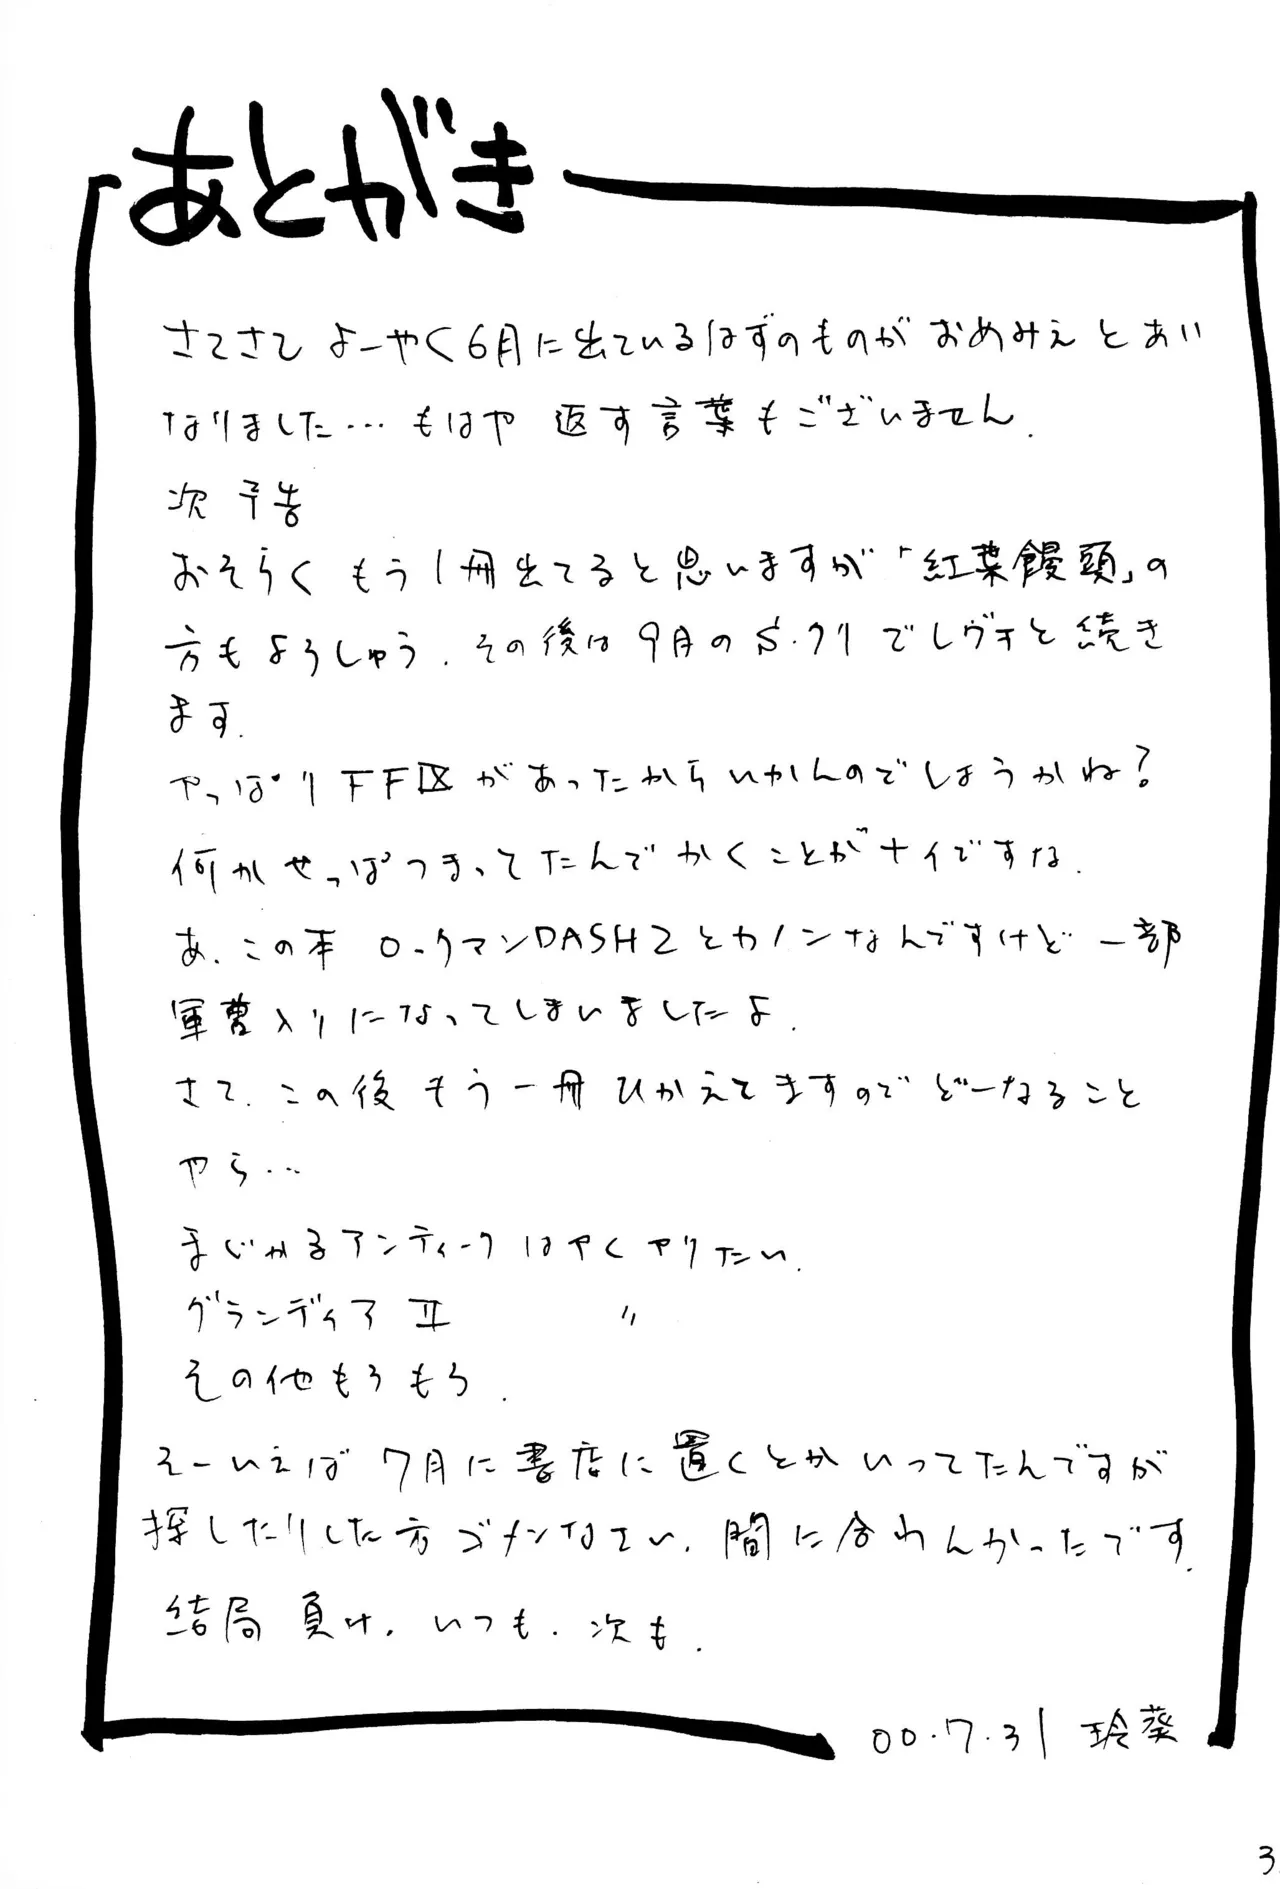 あとがき
さてさて よーやく6月に出ているはずのものが おめみえとあい
なりました… もはや 返す言葉もございません.
次 予告
おそらく もう1冊出てると思いますが「紅葉饅頭」の
方もよろしゅう. その後は 9月のS.クリでレヴォと続き
ます.
やっぱりFFⅨがあったからいかんのでしょうかね?
何かせっぱつまってたんで かくことがナイですな.
あ. この本 ロックマンDASH2とカノンなんですけど 一部
軍曹入りになってしまいましたよ.
さて. この後 もう一冊 ひかえてますので どーなること
やら…
まじかるアンティーク はやくやりたい.
グランディア Ⅱ 〃
その他もろもろ.
そーいえば 7月に書店に置くとかいってたんですが
探したりした方 ゴメンなさい. 間に合わんかったです.
結局 負け. いつも. 次も.
00.7.31 玲葵
3